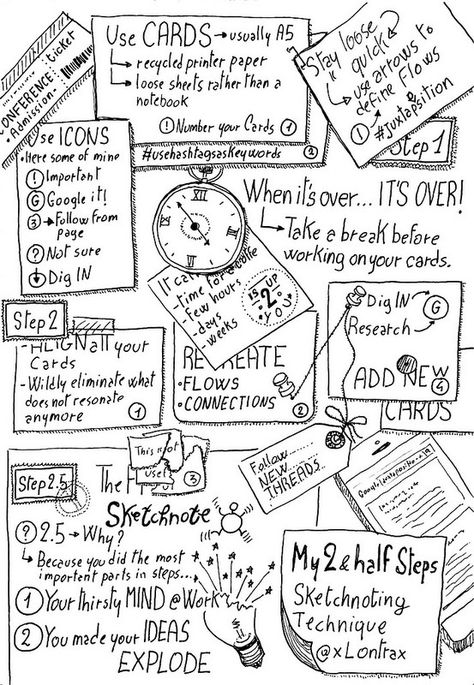 CONFERENCE: ticket
• Admission -
Use CARDS → usually A5
↳ recycled printer paper
↳ loose sheets rather than a
notebook
! Number your Cards 1
#usehashtagsasKeywords 2
Stay loose
"quick"
↳ use arrows to
define Flows
1 #juxtaposition
Step 1
Use ICONS
• Here some of mine
! Important
G Google it!
3 → Follow from
page
? Not sure
Dig IN
XII
III
VI
IX
When it's over... IT'S OVER!
↳ Take a break before
working on your cards.
It can
- time for a
- few hours
- days
- weeks
IS UP
2
YOU
Step 2
- ALIGN all your
Cards
- Wildly eliminate what
does not resonate
anymore
1
RECREATE
• FLOWS
• CONNECTIONS 2
Dig IN
Research → G
ADD NEW 4
CARDS
Follow
NEW
THREADS...
This is not
useful
3
Step 2.5
The
Sketchnote
? 2.5 → Why?
↳ Because you did the most
important parts in steps...
1 Your thirsty MIND @Work
2 You made your IDEAS
EXPLODE
My 2 & half Steps
Sketchnoting
Technique
@xLontrax